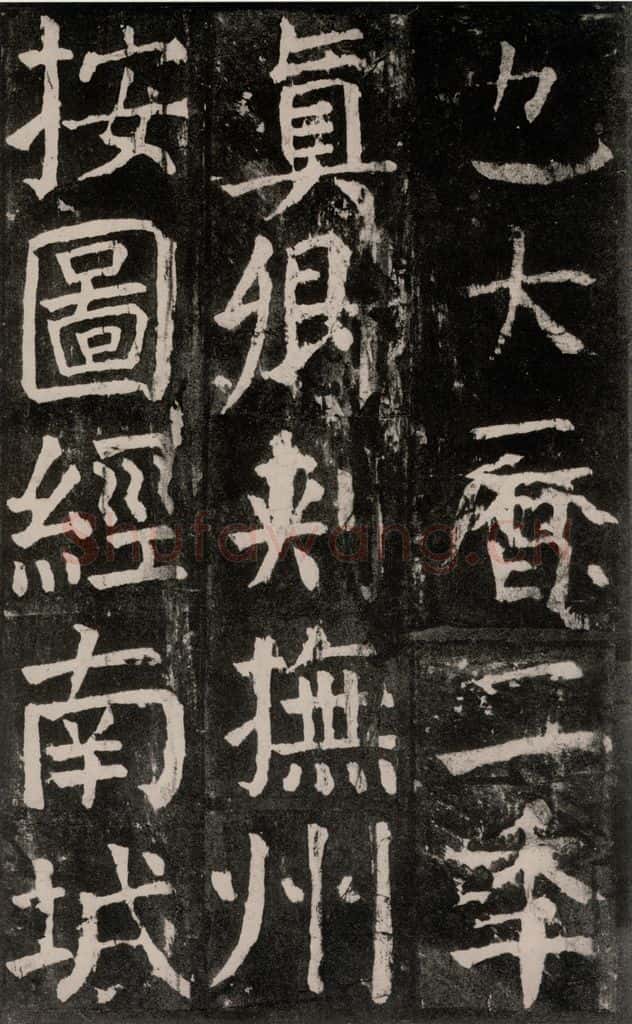 也大曆二秊
真卿刺撫州
按圖經南城
Shufawang.CN